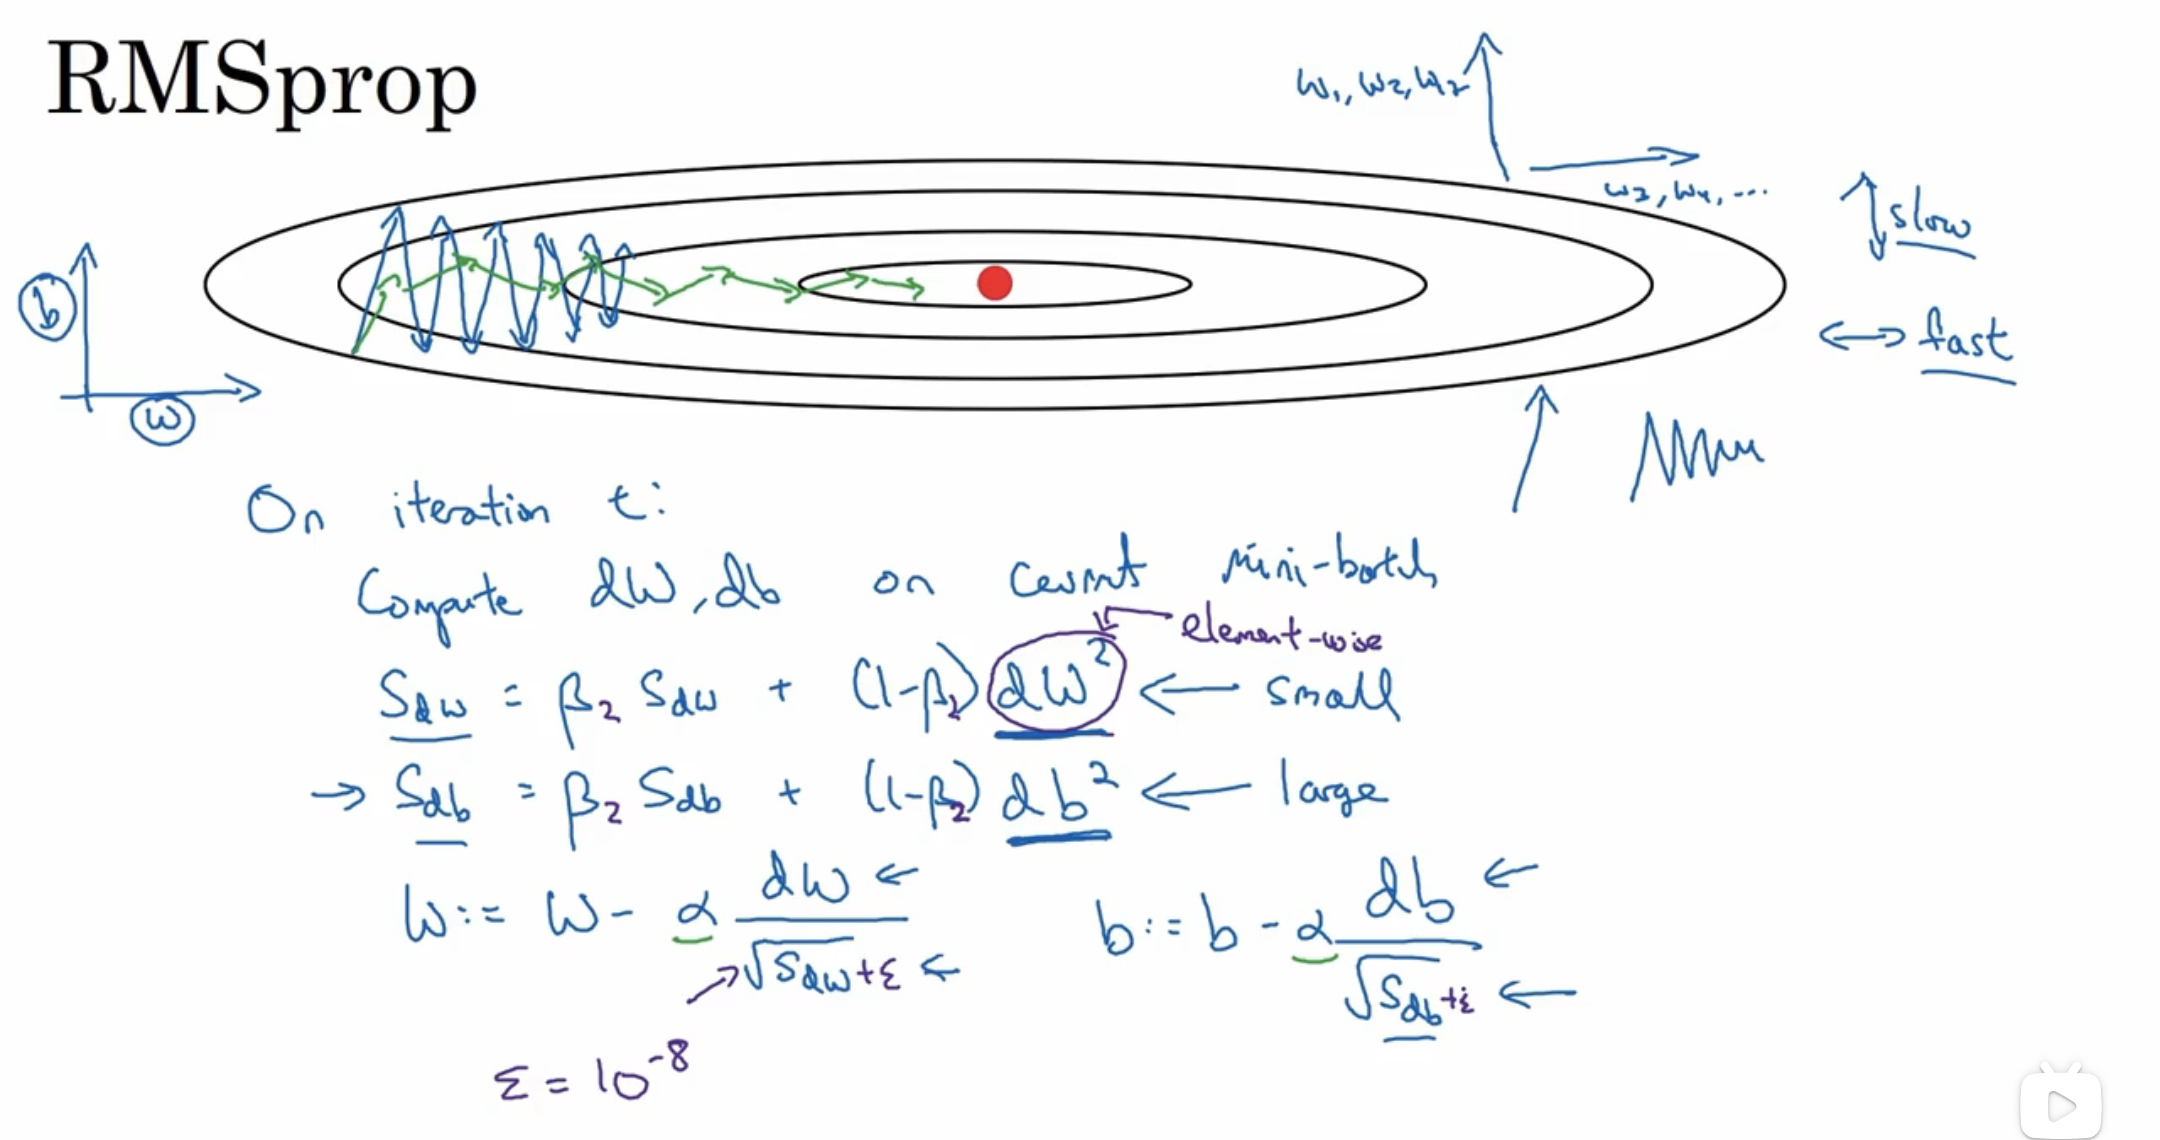 RMSprop
w₁, w₂, w₂
w₃, w₄, ...
slow
fast
b
w
On iteration t:
Compute dW, db on current mini-batch
element-wise
S_dw = β₂ S_dw + (1-β₂) dW² ← small
→ S_db = β₂ S_db + (1-β₂) db² ← large
W := W - α dW / √S_dw + ε ←
b := b - α db / √S_db + ε ←
ε = 10⁻⁸